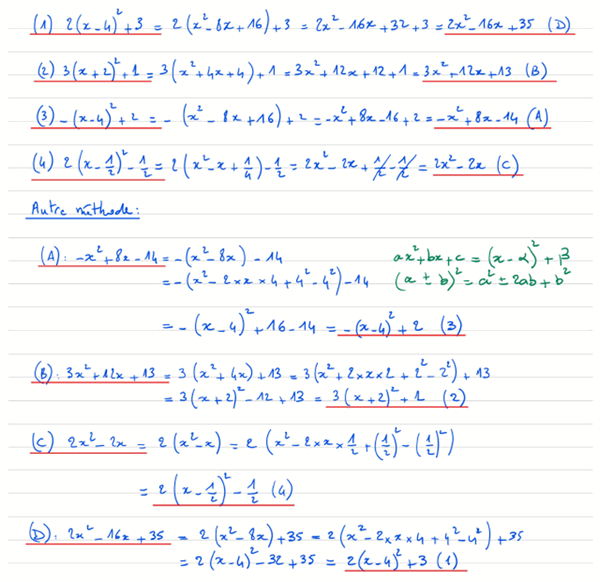 (1) 2(x-4)²+3 = 2(x²-8x+16)+3 = 2x²-16x+32+3 = 2x²-16x+35 (D)
(2) 3(x+2)²+1 = 3(x²+4x+4)+1 = 3x²+12x+12+1 = 3x²+12x+13 (B)
(3) -(x-4)²+2 = -(x²-8x+16)+2 = -x²+8x-16+2 = -x²+8x-14 (A)
(4) 2(x-1/2)²-1/2 = 2(x²-x+1/4)-1/2 = 2x²-2x+1/2-1/2 = 2x²-2x (C)
Autre méthode:
(A): -x²+8x-14 = -(x²-8x)-14
ax²+bx+c = (x-α)²+β
= -(x²-2×x×4+4²-4²)-14
(a±b)² = a²±2ab+b²
= -(x-4)²+16-14 = -(x-4)²+2 (3)
(B): 3x²+12x+13 = 3(x²+4x)+13 = 3(x²+2×x×2+2²-2²)+13
= 3(x+2)²-12+13 = 3(x+2)²+1 (2)
(C) 2x²-2x = 2(x²-x) = 2(x²-2×x×1/2+(1/2)²-(1/2)²)
= 2(x-1/2)²-1/2 (4)
(D): 2x²-16x+35 = 2(x²-8x)+35 = 2(x²-2×x×4+4²-4²)+35
= 2(x-4)²-32+35 = 2(x-4)²+3 (1)